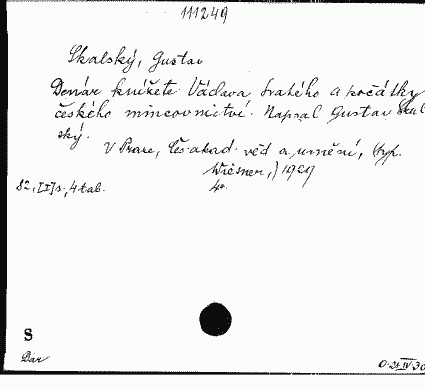 111249
Skalský, Gustav
Denár knížete Václava Svatého a počátky
českého mincovnictví. Napsal Gustav Skal
ský.
V Praze, Čes. akad. věd a umění, (typ.
Wiesner,) 1929
82, [I] s., 4 tab. 4°
S
Dar